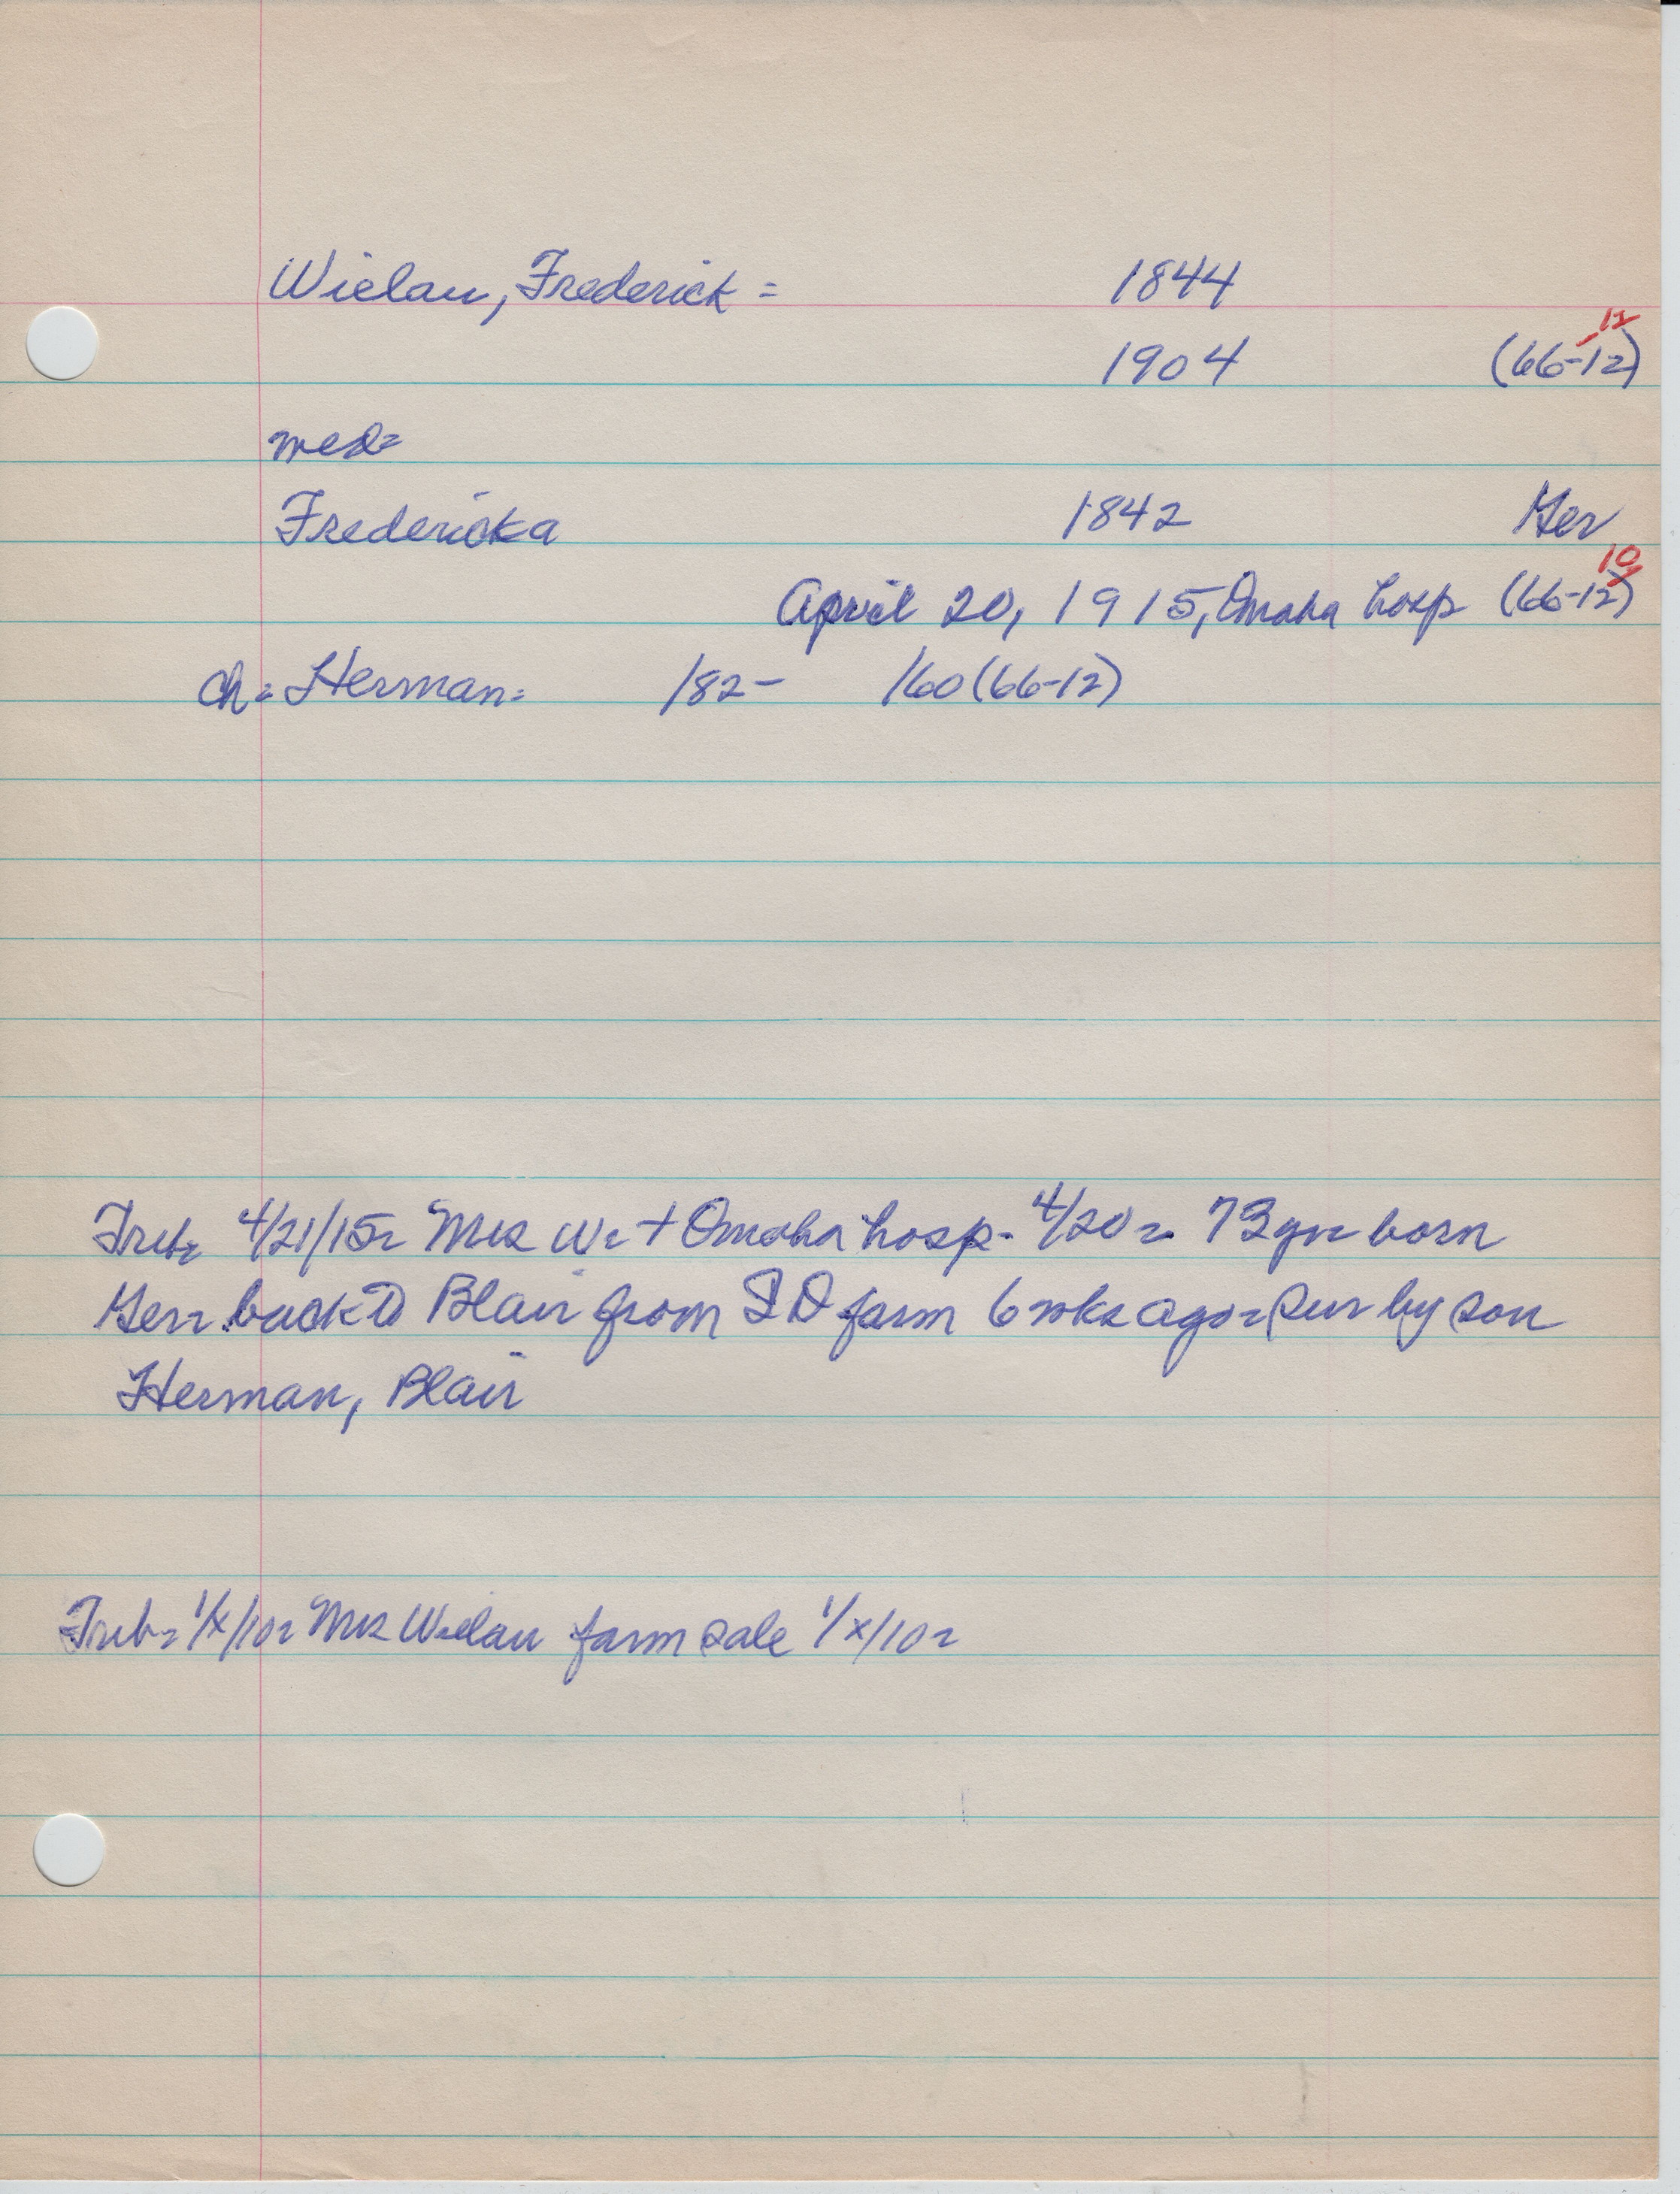 Wielau, Frederick = 1844
11
1904 (66-12)
med=
Fredericka 1842 Ger
10
April 20, 1915, Omaha hosp (66-12)
ch= Herman= 182- 160 (66-12)
Trib= 4/21/15= Mrs W= + Omaha hosp- 4/20= 73yr= born
Ger= back to Blair from SD farm 6 wks ago= sur by son
Herman, Blair
Trib= 1/x/10= Mrs Wielau farm sale 1/x/10=